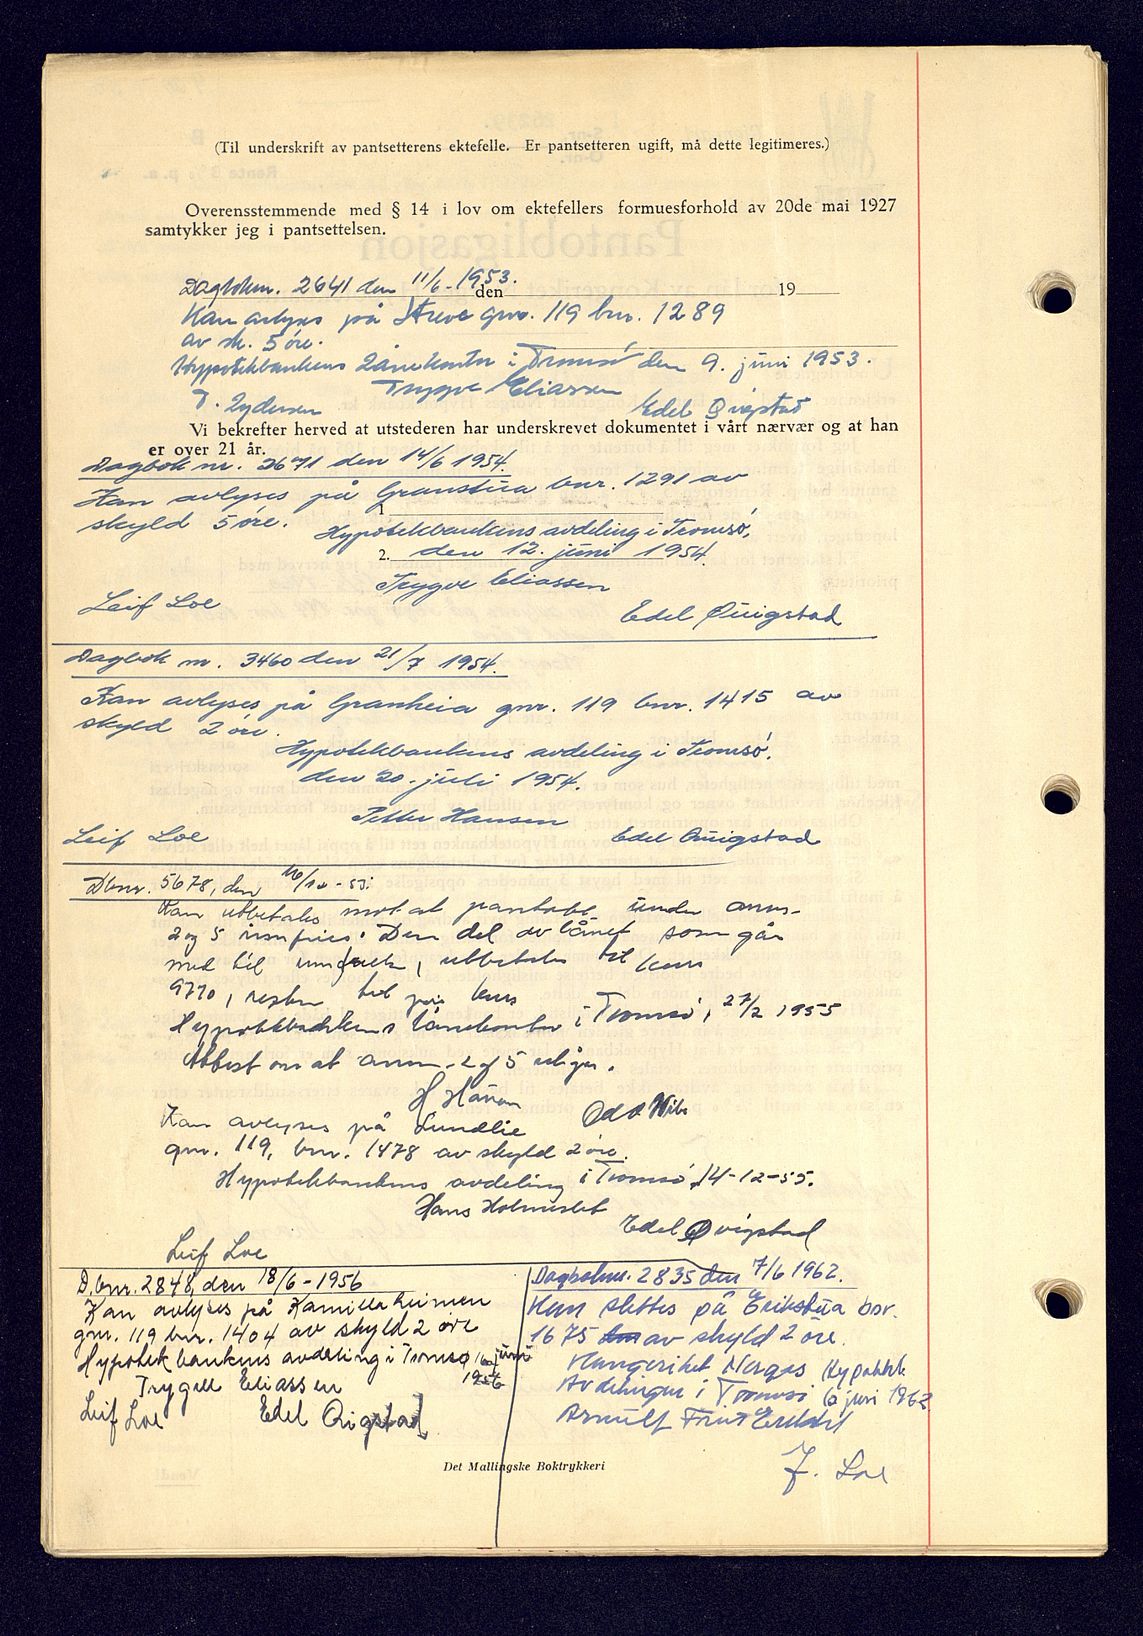 (Til underskrift av pantsetterens ektefelle. Er pantsetteren ugift, må dette legitimeres.)
Overensstemmende med § 14 i lov om ektefellers formuesforhold av 20de mai 1927
samtykker jeg i pantsettelsen.
Dagboknr. 2641 den 11/6-1953.
den 19
Kan avlyses på gnr. 119 bnr. 1289
av sk. 5 øre.
Hypotekbankens Lånekontor i Tromsø den 9. juni 1953.
Trygve Eliassen
Edel Qvigstad
Vi bekrefter herved at utstederen har underskrevet dokumentet i vårt nærvær og at han
er over 21 år.
Dagbok nr. 2671 den 14/6 1954.
Kan avlyses på Granstua bnr. 1291 av
skyld 5 øre.
1
Hypotekbankens avdeling i Tromsø,
2. den 12. juni 1954.
Trygve Eliassen
Leif Loe
Edel Quigstad
Dagbok nr. 3460 den 21/7 1954.
Kan avlyses på Granheia gnr. 119 bnr. 1415 av
skyld 2 øre.
Hypotekbankens avdeling i Tromsø.
den 20. juli 1954.
Petter Hansen
Leif Loe Edel Quigstad
Dbnr. 5678, den 16/12-55.
Kan utbetales mot at pantobl. under anm.
2 og 5 Den del av lånet som går
med til utbetales til kurs
9770, resten til kurs
Hypotekbankens lånekontor i Tromsø, 27/2 1955
Attest om at anm. 2 og 5
H Hansen
Odd
Kan avlyses på Lundlie
gnr. 119, bnr. 1478 av skyld 2 øre.
Hypotekbankens avdeling i Tromsø, 14-12-55.
Hans Holmeslet
Edel Qvigstad
Leif Loe
D.bnr. 2848, den 18/6-1956
Kan avlyses på Kamillaheimen
gnr. 119 bnr. 1404 av skyld 2 øre
Hypotekbankens avdeling i Tromsø juni
1956
Trygve Eliassen
Leif Loe Edel Qvigstad
Dagboknr. 2835 den 7/6 1962.
Kan slettes på Erikstua bnr.
1675 av skyld 2 øre.
Kongeriket Norges Hypotekb.
Avdelingen i Tromsø 6 juni 1962
Arnulf
F. Loe
Det Mallingske Boktrykkeri